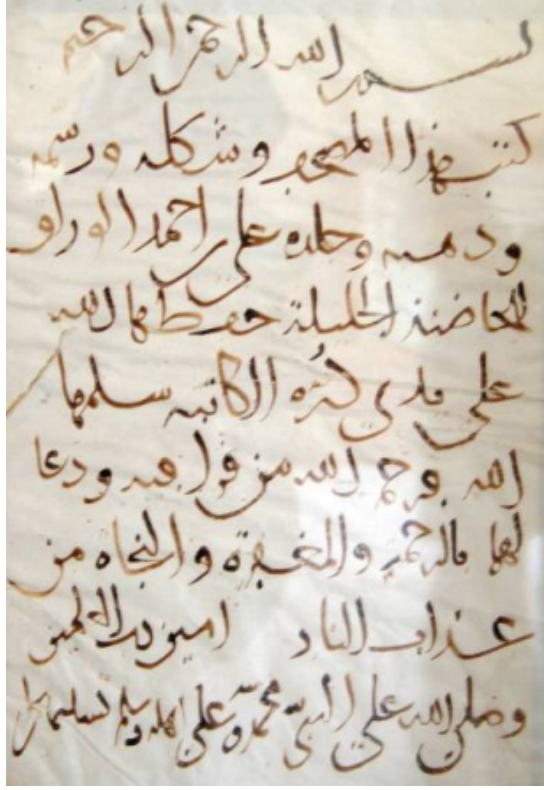 بسم الله الرحمن الرحيم
كتب هذا المصحف وشكله ورسمه
وذهبه وجلده علي بن احمد الوراق
للحاضنة الجليلة حفظها الله
على يدي درة الكاتبة سلمها
الله فرحم الله من قرا فيه ودعا
لهما بالرحمة والمغفرة والنجاة من
عذاب النار امين رب العلمين
وصلى الله على النبي محمد وعلى اهله وسلم تسليما